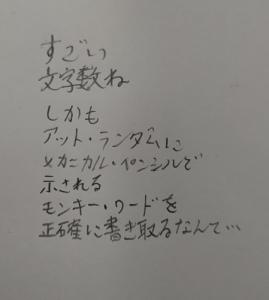 すごい
文字数ね
しかも
アット・ランダムに
メカニカル・ペンシルで
示される
モンキー・ワードを
正確に書き取るなんて…